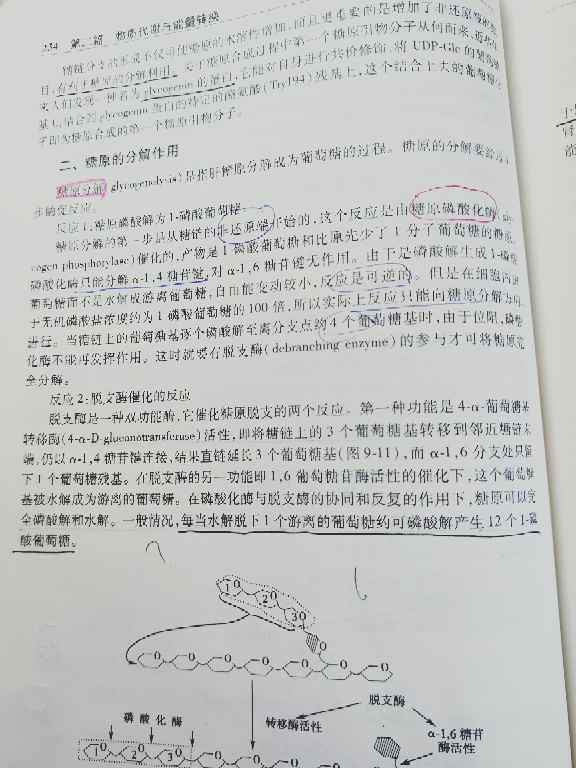 154 第二篇 物质代谢与能量转换
糖链分支的形成不仅可使糖原的水解性增加,而且更重要的是增加了非还原端数
目,有利于糖原的分解利用。关于糖原合成过程中第一个糖原引物分子从何而来,近年
来人们发现一种名为glycogenin的蛋白,它能对自身进行共价修饰,将UDP-Glc的葡萄糖
基 结合到glycogenin蛋白的特定的酪氨酸(Try194)残基上,这个结合上去的葡萄糖
即为糖原合成的第一个糖原引物分子。
二、糖原的分解作用
糖原分解(glycogenolysis)是指肝糖原分解成为葡萄糖的过程。糖原的分解要经过
步酶促反应。
反应1:糖原磷酸解为1-磷酸葡萄糖
糖原分解的第一步是从糖链的非还原端开始的,这个反应是由糖原磷酸化酶(gly-
cogen phosphorylase)催化的,产物是1-磷酸葡萄糖和比原先少了1分子葡萄糖的糖原,
磷酸化酶只能分解α-1,4糖苷键,对α-1,6糖苷键无作用。由于是磷酸解生成1-磷酸
葡萄糖而不是水解成游离葡萄糖,自由能变动较小,反应是可逆的。但是在细胞内由
于无机磷酸盐浓度约为1-磷酸葡萄糖的100倍,所以实际上反应只能向糖原分解方向
进行。当糖链上的葡萄糖基逐个磷酸解至离分支点约4个葡萄糖基时,由于位阻,磷酸
化酶不能再发挥作用。这时就要有脱支酶(debranching enzyme)的参与才可将糖原完
全分解。
反应2:脱支酶催化的反应
脱支酶是一种双功能酶,它催化糖原脱支的两个反应。第一种功能是4-α-葡萄糖基
转移酶(4-α-D-glucanotransferase)活性,即将糖链上的3个葡萄糖基转移到邻近糖链末
端,仍以α-1,4糖苷键连接,结果直链延长3个葡萄糖基(图9-11),而α-1,6分支处只留
下1个葡萄糖残基。在脱支酶的另一功能即1,6葡萄糖苷酶活性的催化下,这个葡萄糖
基被水解成为游离的葡萄糖。在磷酸化酶与脱支酶的协同和反复的作用下,糖原可以完
全磷酸解和水解。一般情况,每当水解脱下1个游离的葡萄糖约可磷酸解产生12个1-磷
酸葡萄糖。
1 O
2 O
3 O
O
O O O O O O
脱支酶
磷酸化酶
转移酶活性
α-1,6糖苷
酶活性
1 O 2 O 3 O O O O O